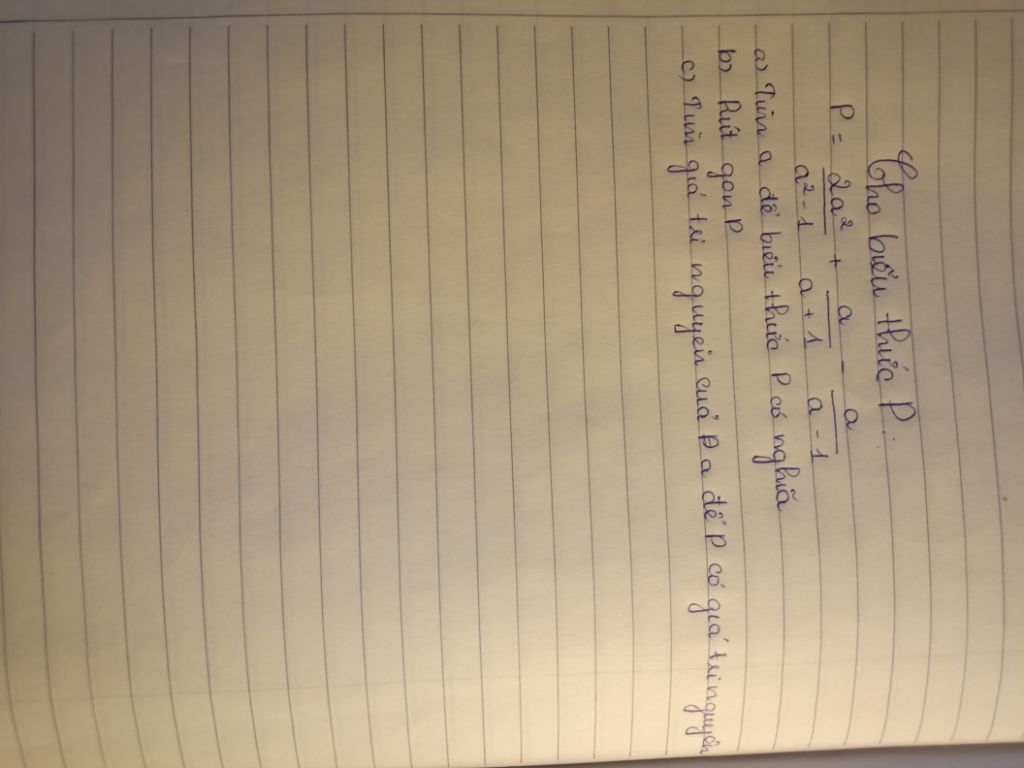 Cho biểu thức P:
P = 2a²/a² - 1 + a/a + 1 - a/a - 1
a) Tìm a để biểu thức P có nghĩa
b) Rút gọn P
c) Tìm giá trị nguyên của P a để P có giá trị nguyên